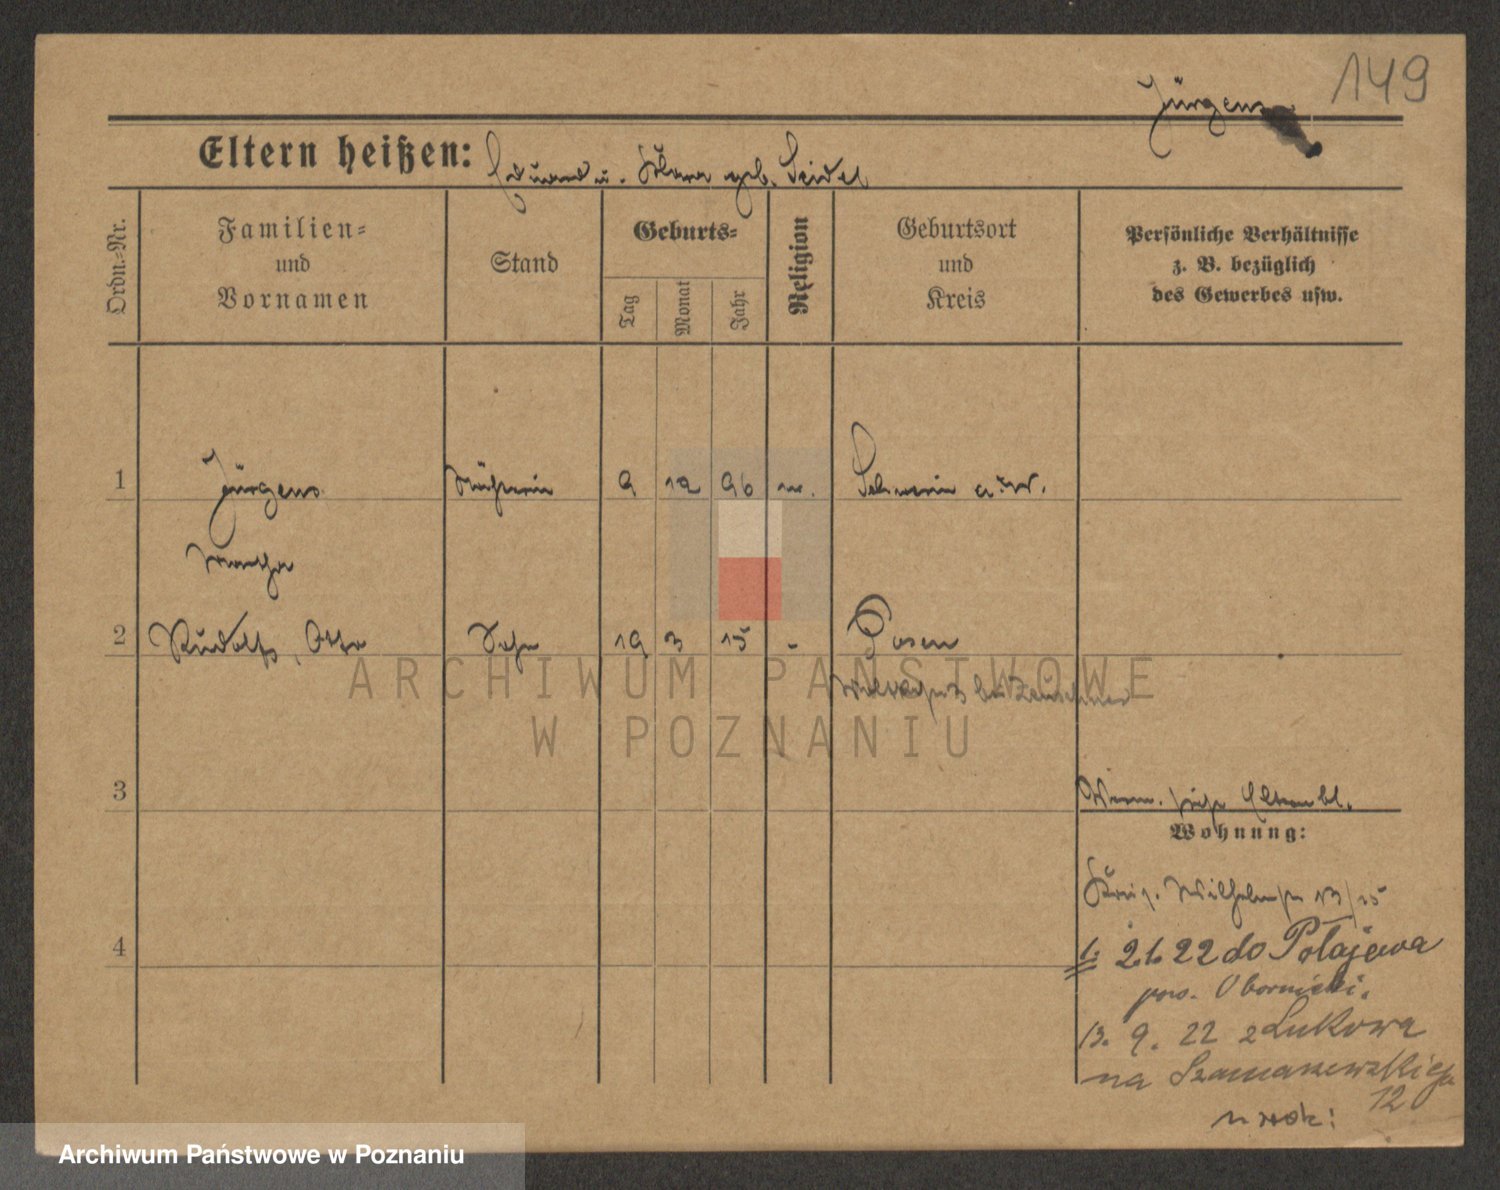 149
Jürgens
Eltern heißen: Eduard u. Klara geb. Seidel
Ordn.=Nr.
Familien=
und
Vornamen
Stand
Geburts=
Tag
Monat
Jahr
Religion
Geburtsort
und
Kreis
Persönliche Verhältnisse
z. B. bezüglich
des Gewerbes usw.
1 Jürgens 9 12 96 Schwerin a. W.
Martha
2 Rudolf, Otto Sohn 19 3 15 - Posen
ARCHIWUM PAŃSTWOWE
W POZNANIU
3
Verm. siehe Elternbl.
Wohnung:
Wilhelmstr 13/15
4
2.1. 22 do Połajewa
pow. Obornicki.
13. 9. 22 z Lukowa
na Szamarzewskiego
12
Archiwum Państwowe w Poznaniu